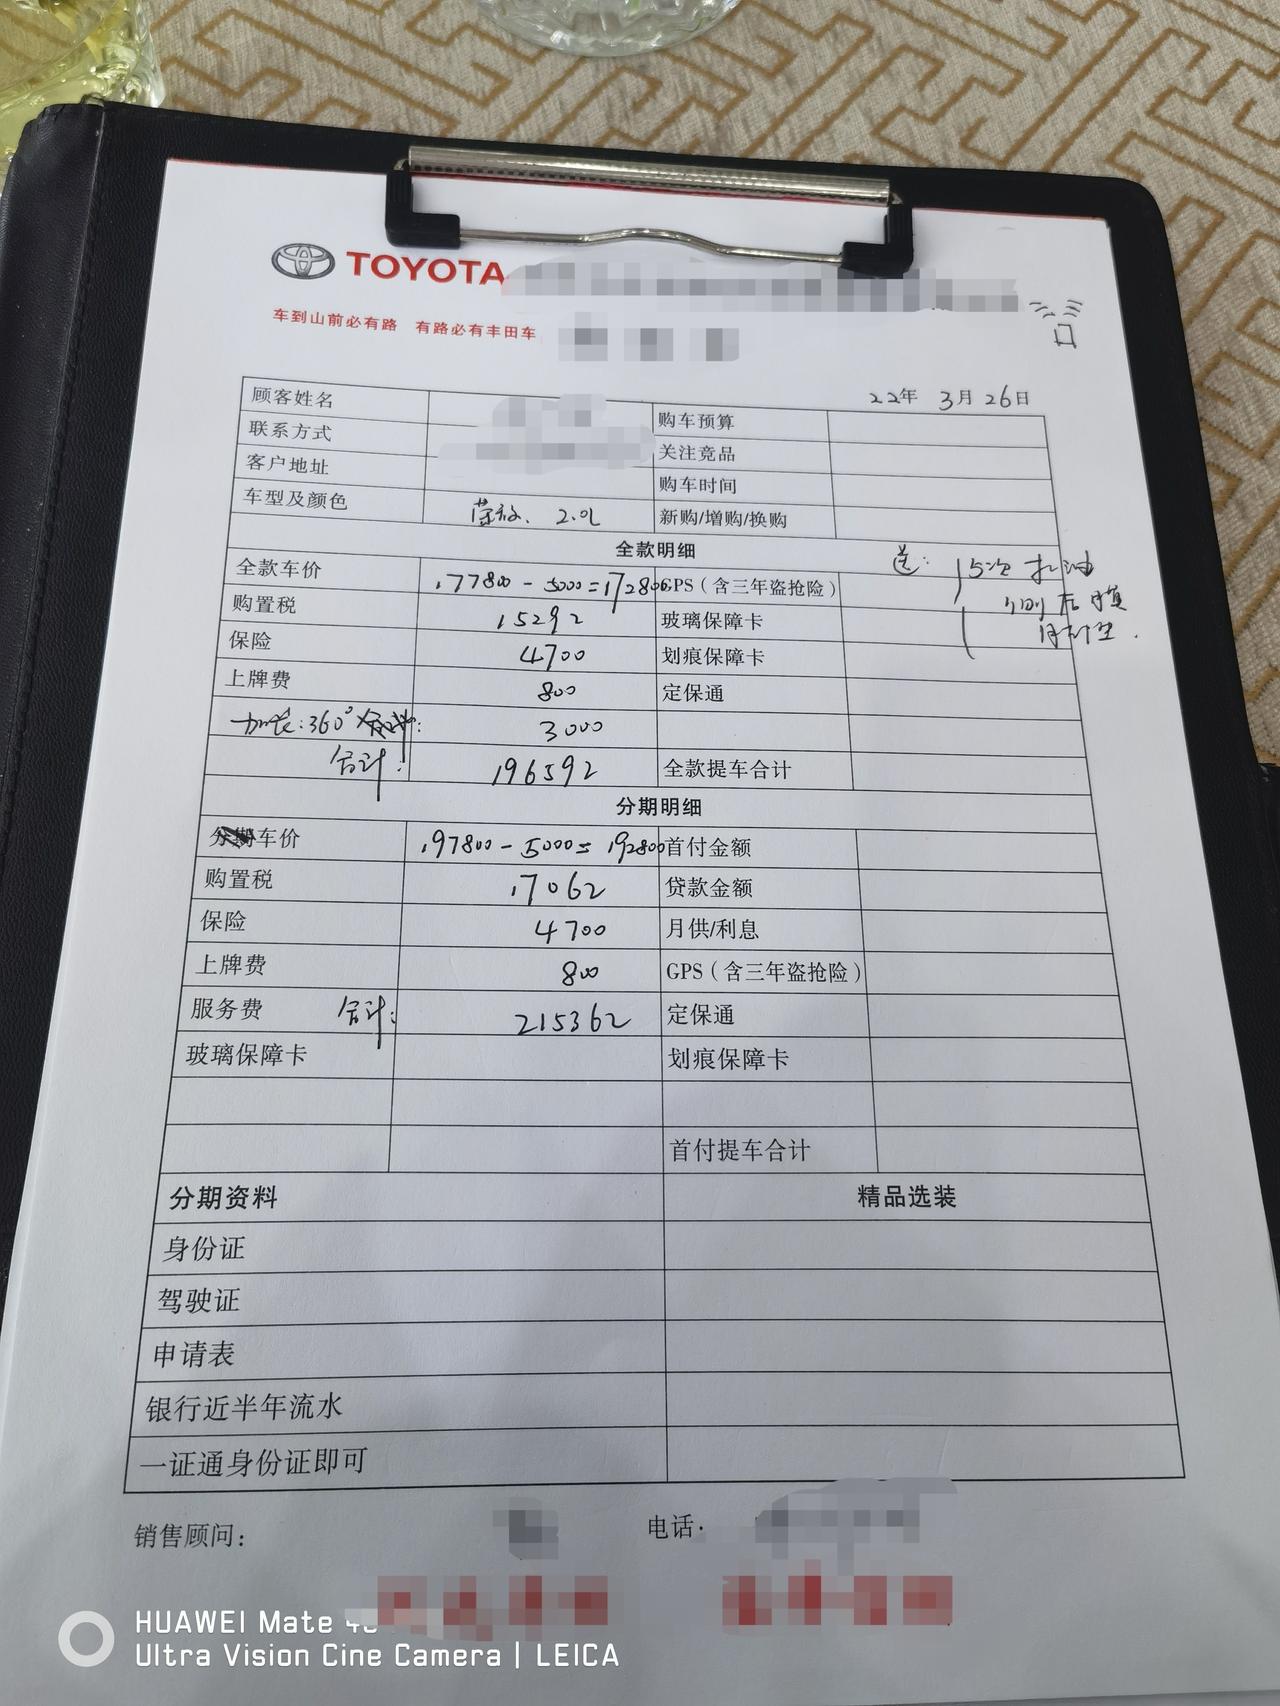 TOYOTA
车到山前必有路 有路必有丰田车
22年 3月26日
顾客姓名 购车预算
联系方式 关注竞品
客户地址 购车时间
车型及颜色 荣放、2.0L 新购/增购/换购
全款明细
送:
15次
全款车价 177800-5000=172800 GPS(含三年盗抢险)
购置税 15292 玻璃保障卡
保险 4700 划痕保障卡
上牌费 800 定保通
加装:360° 3000
合计: 196592 全款提车合计
分期明细
车价 197800-5000=192800 首付金额
购置税 17062 贷款金额
保险 4700 月供/利息
上牌费 800 GPS(含三年盗抢险)
服务费 合计: 215362 定保通
玻璃保障卡 划痕保障卡
首付提车合计
分期资料 精品选装
身份证
驾驶证
申请表
银行近半年流水
一证通身份证即可
销售顾问: 电话:
HUAWEI Mate 40
Ultra Vision Cine Camera | LEICA